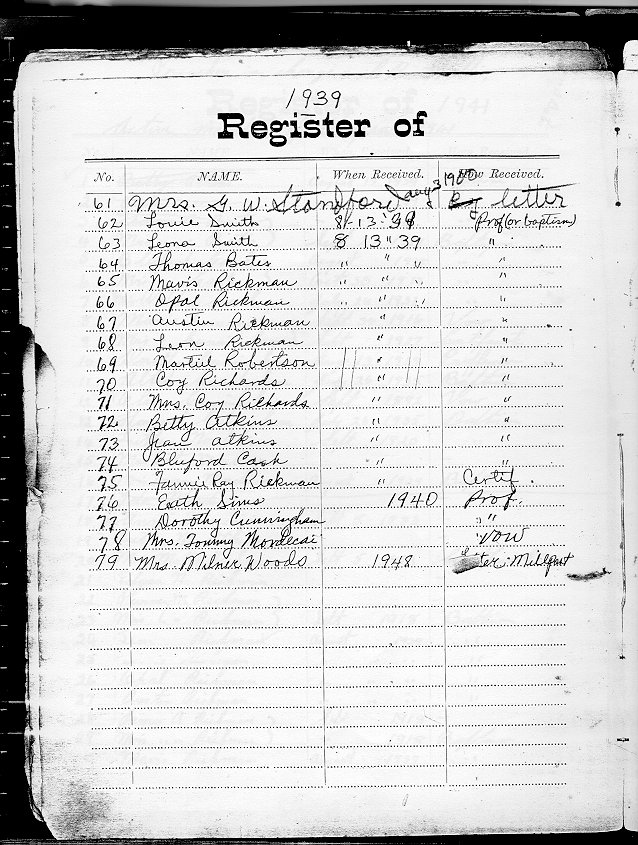 1939
Register of
No. NAME. When Received. How Received.
61 Mrs. G. W. Stanford Aug 3 1900 By letter
62 Louie Smith 8 13 39 Prof (or baptism)
63 Leona Smith 8 13 39 "
64 Thomas Bates " " " "
65 Mavis Rickman " " " "
66 Opal Rickman " " " "
67 Austin Rickman " "
68 Leon Rickman " "
69 Martil Robertson " "
70 Coy Richards " "
71 Mrs. Coy Richards " "
72 Betty Atkins " "
73 Jean Atkins " "
74 Bluford Cash " "
75 Fannie Ray Rickman " Certif.
76 Sims 1940 Prof.
77 Dorothy Cunningham "
78 Mrs. Tommy Mordecai vow
79 Mrs. Milner Woods 1948 Millport